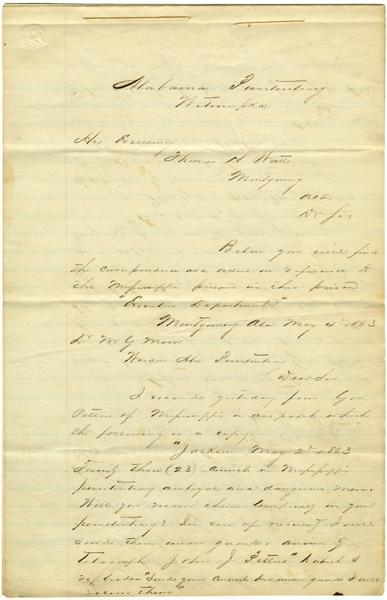 Alabama Penitentiary
Wetumpka
His Excellency
Thomas H Watts
Montgomery
Ala
Dr Sir
Below you will find
the correspondence and orders in reference to
the Mississippi prisoners in this prison
"Executive Department"
Montgomery Ala May 4th 1863
Dr
Warden Ala Penitentiary
Dear Sir
I received yesterday from Gov
Pettus of Mississippi a despatch of which
the following is a copy
"Jackson May 2d 1863
Twenty three (23) convicts in Mississippi
penitentiary are desperate and dangerous men.
Will you receive them temporarily in your
penitentiary? In case of removal I will
send them under guard. answer by
telegraph John J. Pettus" to which I
replied "Send your convicts under guard I will
receive them"